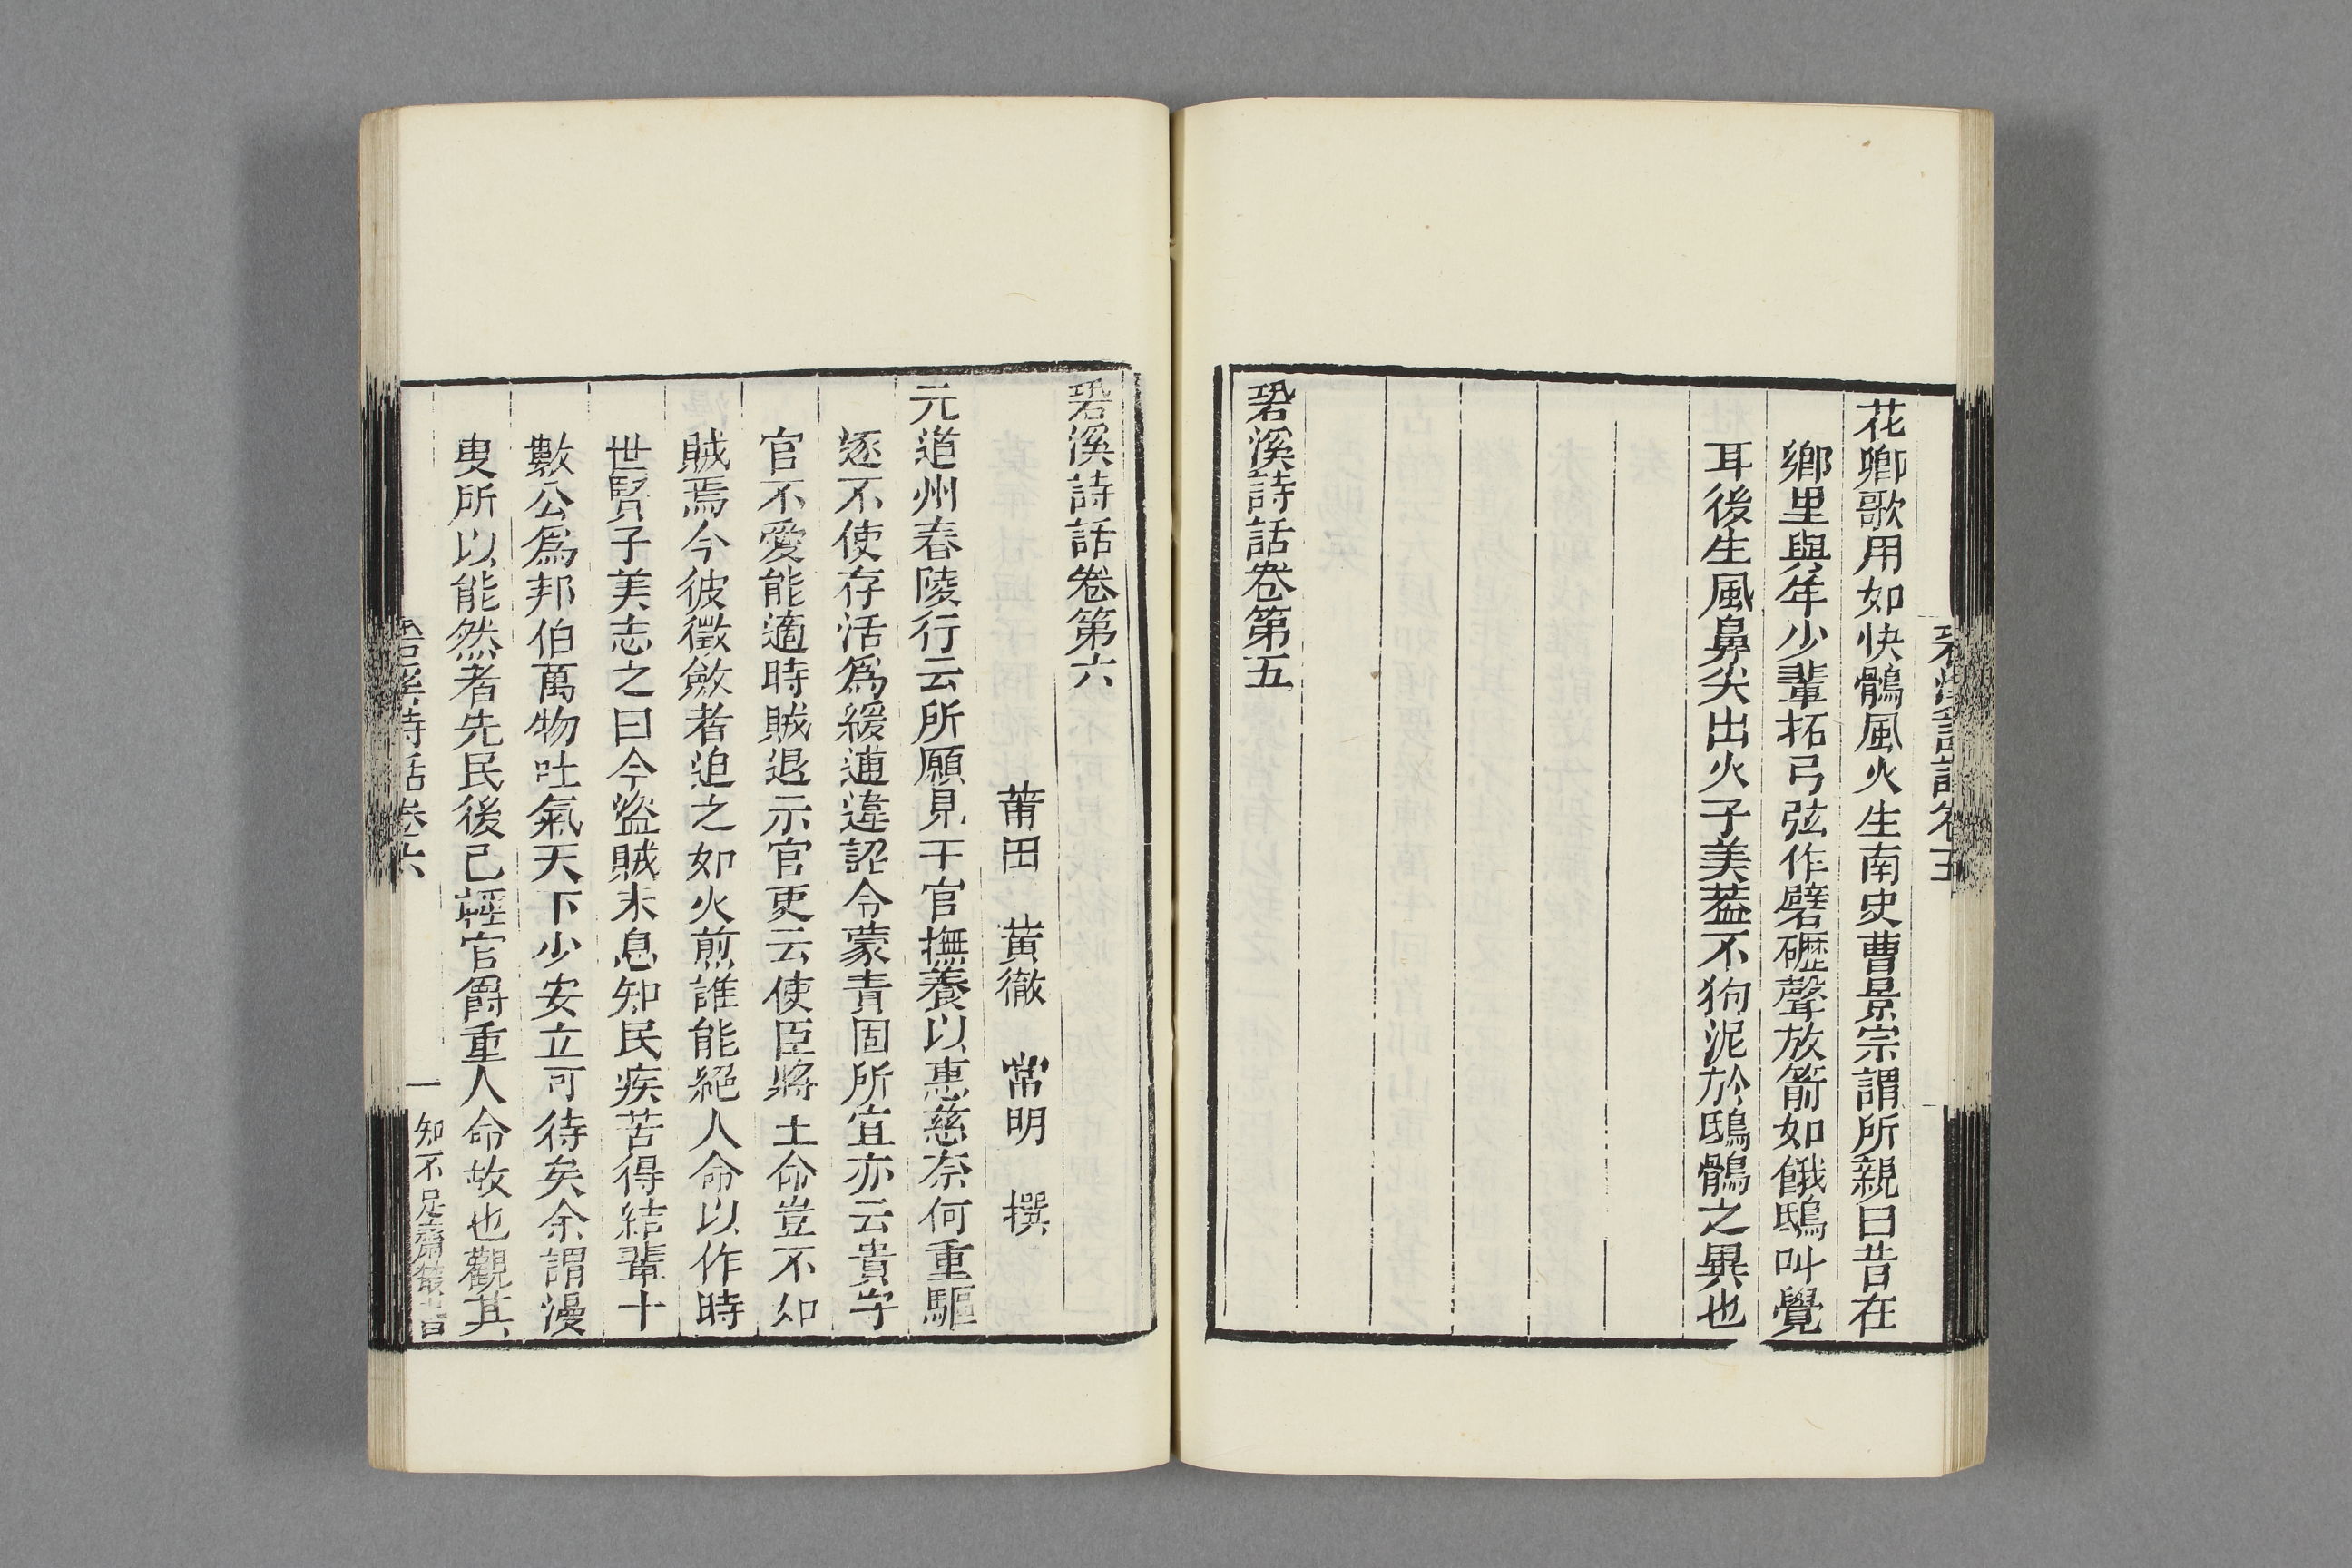 花卿歌用如快鶻風火生南史曹景宗謂所親曰昔在
鄉里與年少輩拓弓弦作礕礰聲放箭如餓鴟叫覺
耳後生風鼻尖出火子美葢不狥泥於鴟鶻之異也
䂬溪詩話卷第五
䂬溪詩話卷第六
莆田 黃徹 常明 撰
元道州舂陵行云所願見王官撫養以惠慈奈何重驅
逐不使存活爲緩逋違詔令蒙責固所宜亦云貴守
官不愛能適時賊退示官吏云使臣將王命豈不如
賊焉今彼徵斂者迫之如火煎誰能絕人命以作時
世賢子美志之曰今盜賊未息知民疾苦得結輩十
數公爲邦伯萬物吐氣天下少安立可待矣余謂漫
叟所以能然者先民後己輕官爵重人命故也觀其
䂬溪詩話卷六
一
知不足齋叢書